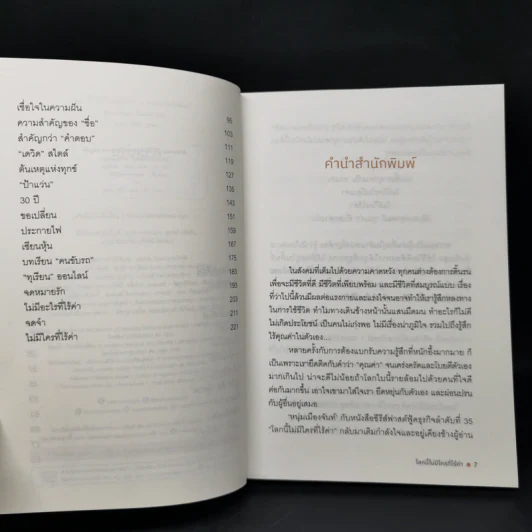 เชื่อใจในความฝัน 95
ความสำคัญของ "ชื่อ" 103
สำคัญกว่า "คำตอบ" 111
"เดวิด" สไตล์ 119
ต้นเหตุแห่งทุกข์ 127
"ป้าแว่น" 135
30 ปี 143
ขอเปลี่ยน 151
ประกายไฟ 159
เซียนหุ้น 167
บทเรียน "คนขับรถ" 175
"ทุเรียน" ออนไลน์ 183
จดหมายรัก 193
ไม่มีอะไรที่ไร้ค่า 203
จดจำ 211
ไม่มีใครที่ไร้ค่า 221
คำนำสำนักพิมพ์
ในสังคมที่เต็มไปด้วยความคาดหวัง ทุกคนต่างต้องการดิ้นรน
เพื่อจะมีชีวิตที่ดี มีชีวิตที่เพียบพร้อม และมีชีวิตที่สมบูรณ์แบบ เรื่อง
ที่ว่าไปนี้ล้วนมีผลต่อแรงกายและแรงใจจนอาจทำให้เรารู้สึกหลงทาง
ในการใช้ชีวิต ทำไมทางเดินข้างหน้านั้นแสนมืดมน ทำอะไรก็ไม่ดี
ไม่เกิดประโยชน์ เป็นคนไม่เก่งพอ ไม่มีเรื่องน่าภูมิใจ รวมไปถึงรู้สึก
ไร้คุณค่าในตัวเอง...
หลายครั้งกับการต้องแบกรับความรู้สึกที่หนักอึ้งมากมาย ก็
เป็นเพราะเรายึดติดกับคำว่า "คุณค่า" จนเคร่งครัดและโบยตีตัวเอง
มากเกินไป น่าจะดีไม่น้อยถ้าโลกใบนี้รายล้อมไปด้วยคนที่ใจดี
ต่อกันมากขึ้น เอาใจเขามาใส่ใจเรา ยืดหยุ่นกับตัวเอง และผ่อนปรน
กับผู้อื่นอยู่เสมอ
'หนุ่มเมืองจันท์' กับหนังสือซีรีส์ฟาสต์ฟู้ดธุรกิจลำดับที่ 35
"โลกนี้ไม่มีใครที่ไร้ค่า" กลับมาเติมกำลังใจและอยู่เคียงข้างผู้อ่าน
โลกนี้ไม่มีใครที่ไร้ค่า 7